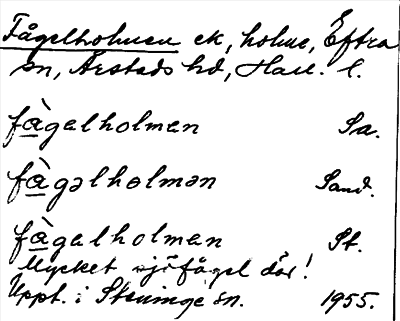 Fågelholmen ek, holme, Eftra
sn, Årstads hd, Hall. l.
fàgəlholmən Sa.
fàgəlholmən Sand.
fàgəlholmən St.
Mycket sjöfågel där!
Uppt. i Steninge sn. 1955.